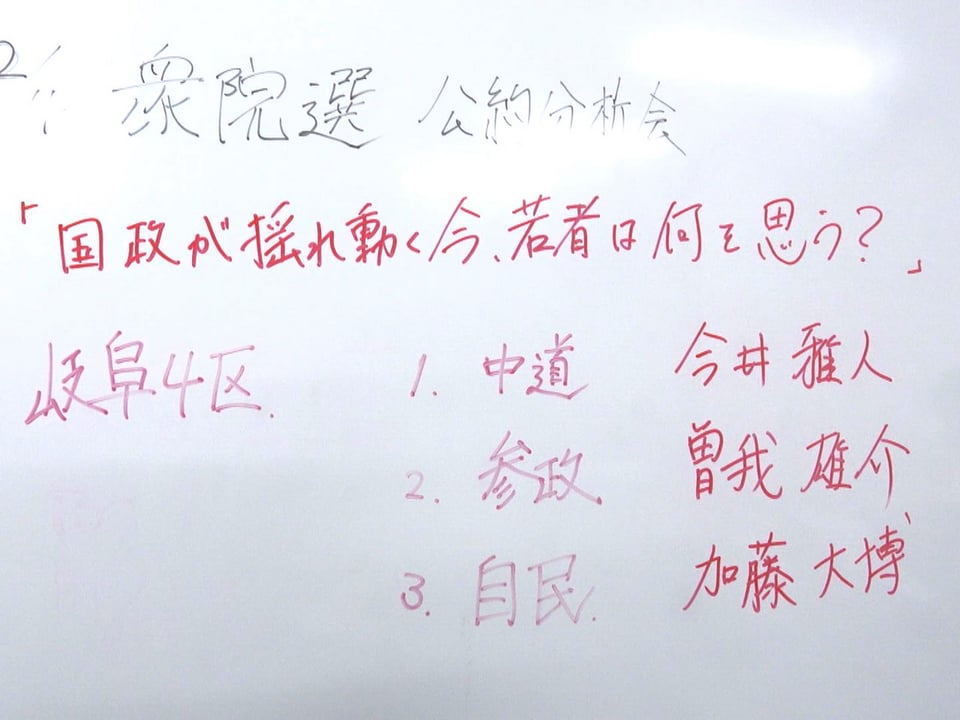 衆院選 公約分析会
「国政が揺れ動く今、若者は何を思う?」
岐阜4区.
1. 中道 今井 雅人
2. 参政 曽我 雄介
3. 自民. 加藤 大博